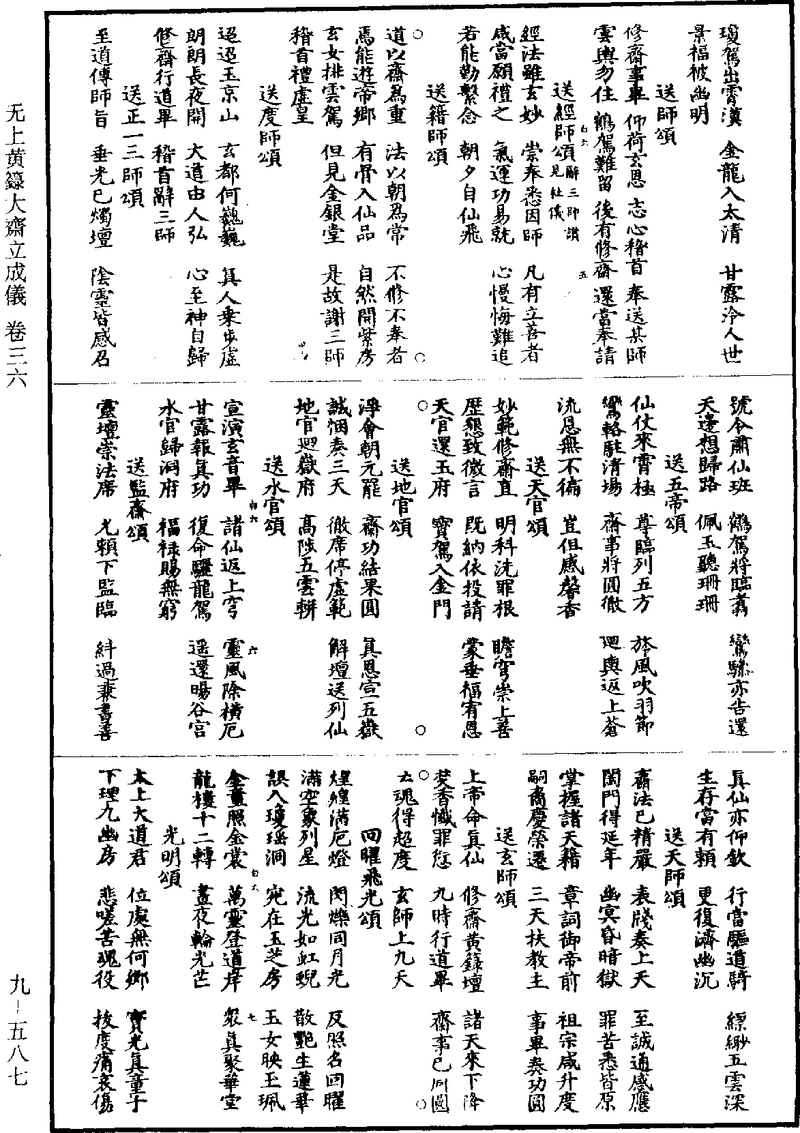 瓊駕出霄漢　金龍入太清　甘露泠人世
景福被幽明
送師頌
修齋事畢　仰荷玄恩　志心稽首　奉送某師
雲輿勿住　鶴駕難留　後有修齋　還當奉請
送經師頌 解三師讚見社儀
經法雖玄妙　崇奉悉因師　凡有立善者
咸當願禮之　氣運功易就　心慢悔難追
若能勤繫念　朝夕自仙飛
送籍師頌
道以齋為重　法以朝為常　不修不奉者
焉能遊帝鄉　有骨入仙品　自然開紫房
玄女排雲駕　但見金銀堂　是故謝三師
稽首禮虛皇
送度師頌
迢迢玉京山　玄都何巍巍　真人乘步虛
朗朗長夜開　大道由人弘　心至神自歸
修齋行道畢　稽首辭三師
送正一三師頌
至道傳師旨　垂光已燭壇　陰靈皆感召
號令肅仙班　鶴駕將臨蓊　鸞驂亦告還
天邊想歸路　佩玉聽珊珊
送五帝頌
仙仗來霄極　尊臨列五方　旂風吹羽節
鸞輅駐清場　齋事將圓徹　迴輿返上蒼
流恩無不徧　豈但感馨香
送天官頌
妙範修齋直　明科洗罪根　瞻穹崇上善
歷懇致微言　既納依投請　蒙垂福宥恩
天官還玉府　寶駕入金門
送地官頌
淨會朝元罷　齋功結果圓　真恩宣五嶽
誠悃奏三天　徹席停虛範　解壇送列仙
地官迴嶽府　高陟五雲軿
送水官頌
宣演玄音畢　諸仙返上穹　靈風除橫厄
甘露報真功　復命驅龍駕　遥還暘谷宮
水官歸洞府　福祿賜無窮
送監齋頌
靈壇崇法席　允賴下監臨　糾過兼書善
真仙亦仰欽　行當驅道騎　縹緲五雲深
生存當有賴　更復濟幽沉
送天師頌
齋法已精嚴　表牋奏上天　至誠通感應
闔門得延年　幽冥昏暗獄　罪苦悉皆原
掌握諸天籍　章詞御帝前　祖宗咸升度
嗣裔慶榮遷　三天扶教主　事畢奏功圓
送玄師頌
上帝命真仙　修齋黃籙壇　諸天來下降
焚香懺罪愆　九時行道畢　齋事已周圓
亡魂得超度　玄師上九天
回曜飛光頌
煌煌滿厄燈　閃爍同月光　反照名回曜
滿空象列星　流光如虹蜺　散艷生蓮華
誤入瓊瑤洞　宛在玉芝房　玉女映玉珮
金童照金裳　萬靈登道岸　眾真聚華堂
龍樓十二轉　晝夜輪光芒
光明頌
太上大道君　位處無何鄉　寶光真童子
下理九幽房　悲嗟苦魂役　拔度痛哀傷
无上黄籙大齋立成儀　卷三六
九-五八七